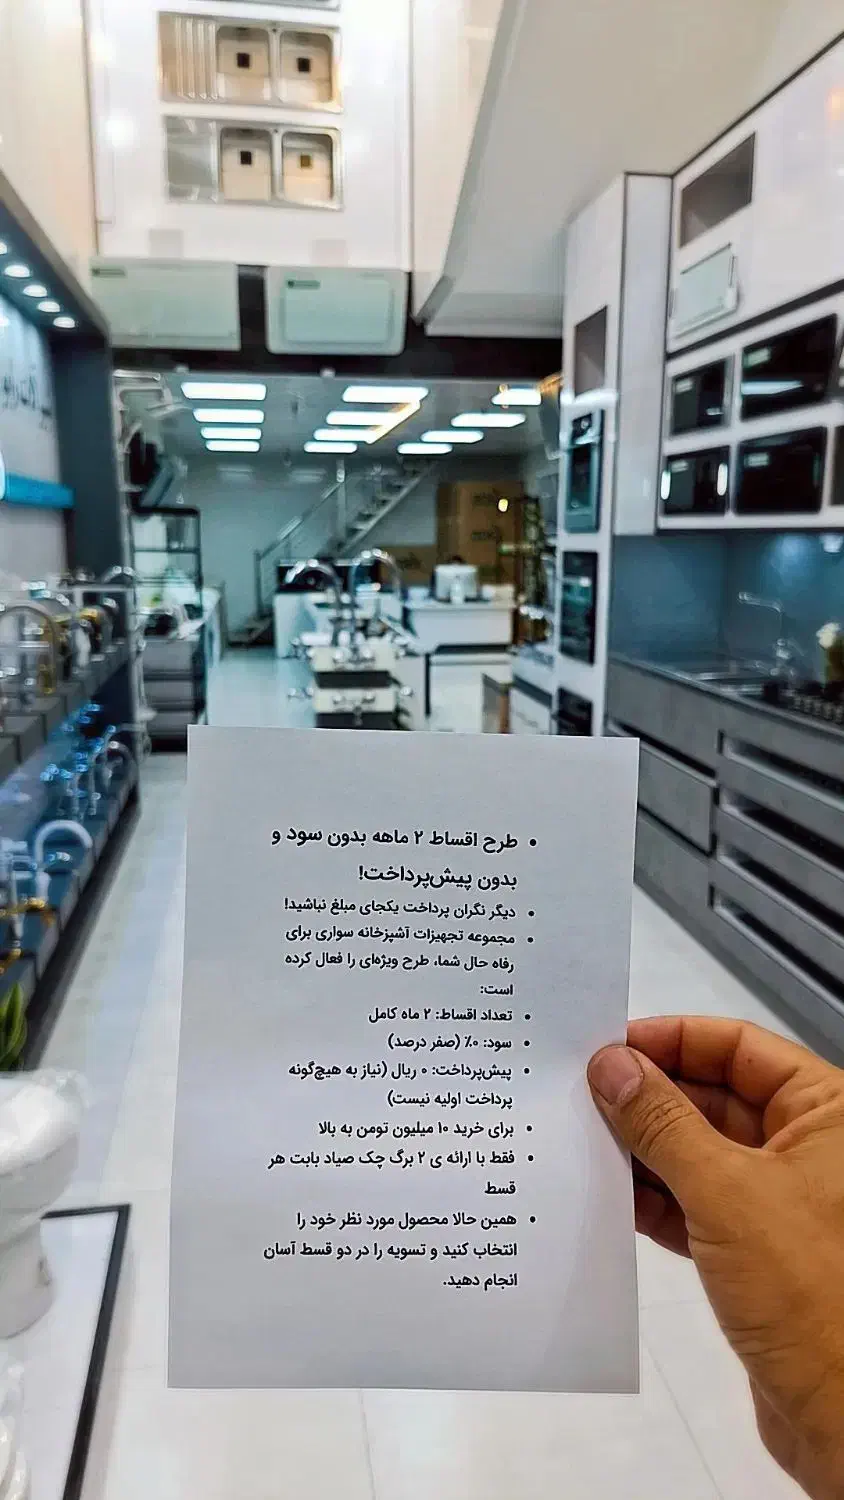 • طرح اقساط ۲ ماهه بدون سود و
بدون پیش‌پرداخت!
• دیگر نگران پرداخت یکجای مبلغ نباشید!
• مجموعه تجهیزات آشپزخانه سواری برای
رفاه حال شما، طرح ویژه‌ای را فعال کرده
است:
• تعداد اقساط: ۲ ماه کامل
• سود: ۰٪ (صفر درصد)
• پیش‌پرداخت: ۰ ریال (نیاز به هیچ‌گونه
پرداخت اولیه نیست)
• برای خرید ۱۰ میلیون تومن به بالا
• فقط با ارائه ی ۲ برگ چک صیاد بابت هر
قسط
• همین حالا محصول مورد نظر خود را
انتخاب کنید و تسویه را در دو قسط آسان
انجام دهید.